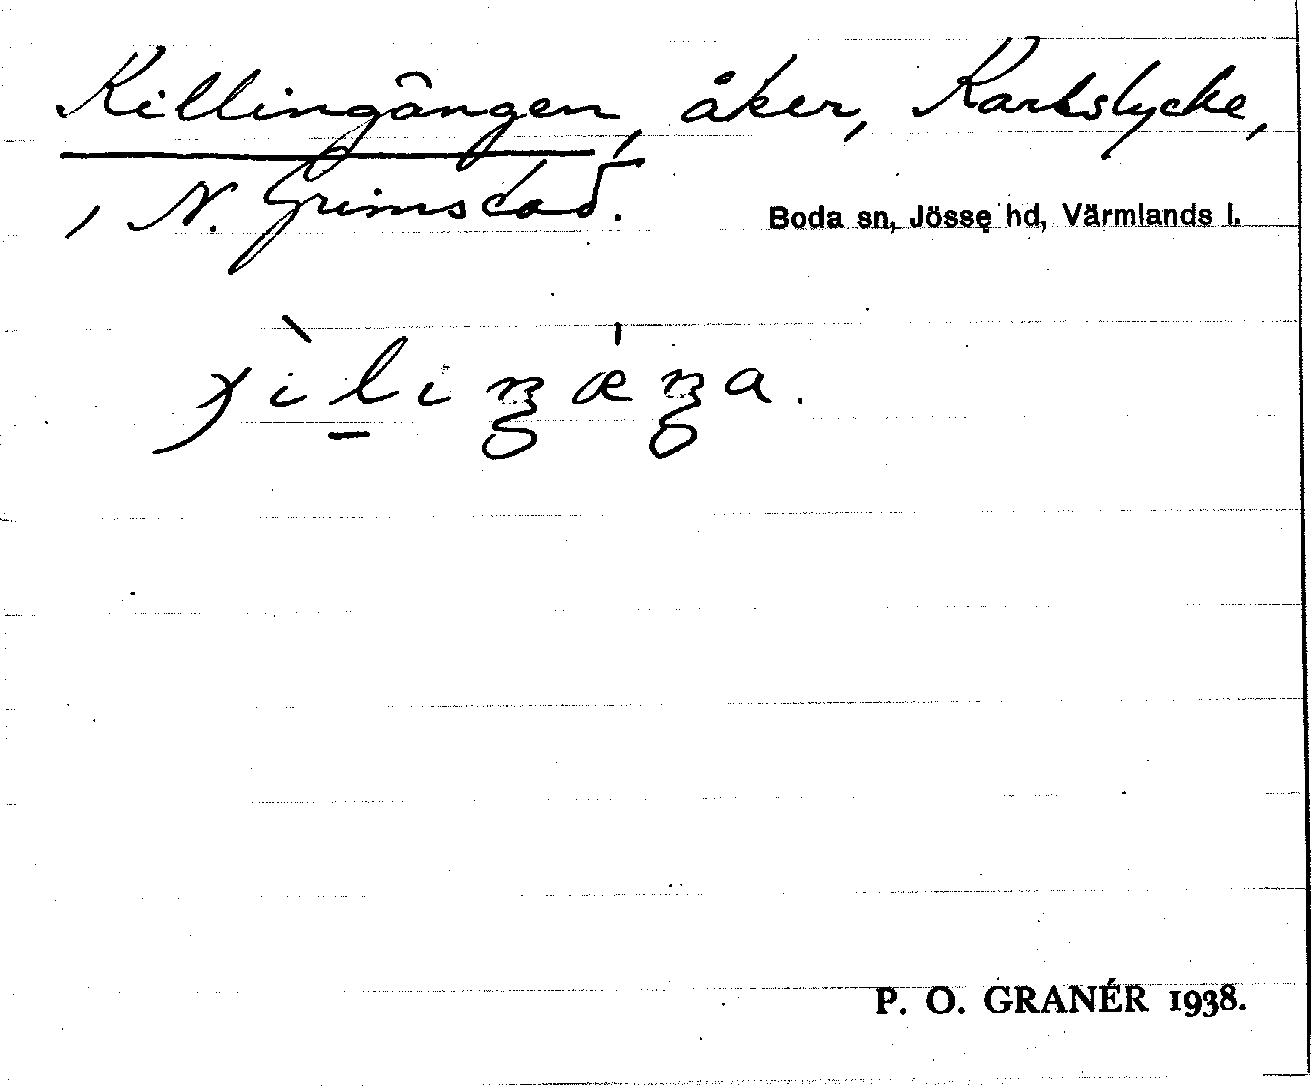 Killingängen, åker, Karlslycke,
, N. Grimstad.
Boda sn, Jösse hd, Värmlands l.
P. O. GRANÉR 1938.